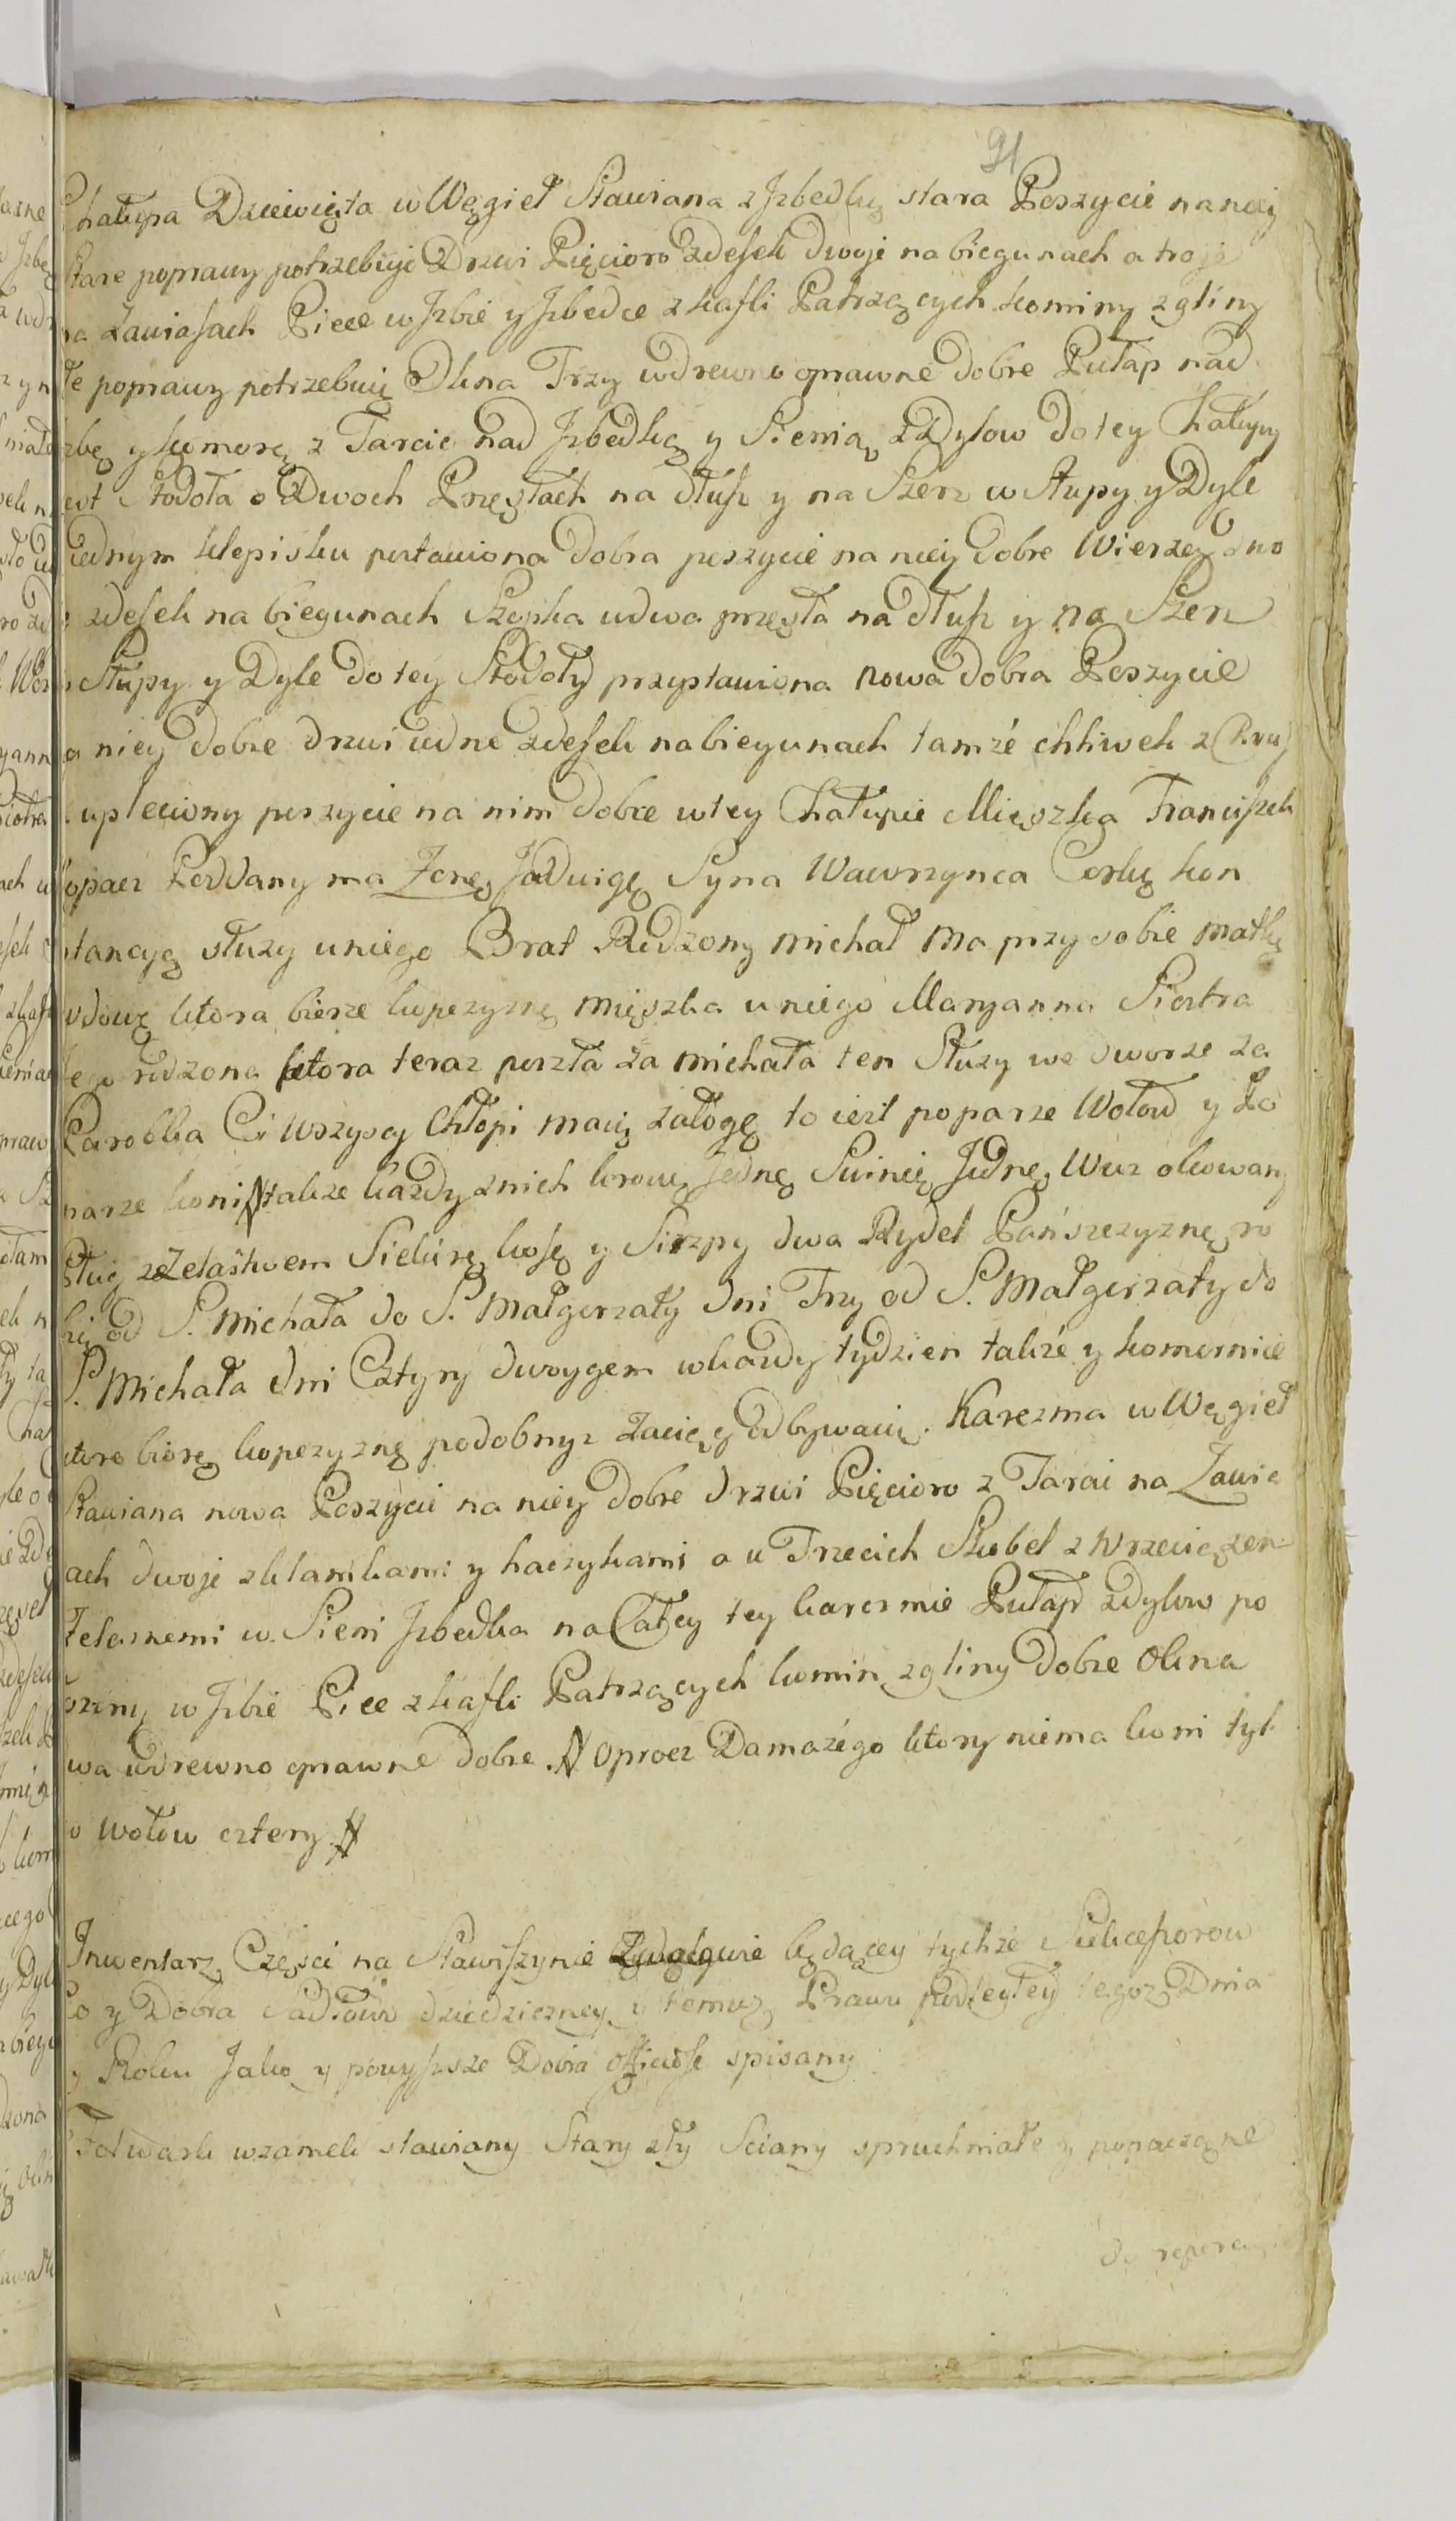 91
Chałupa Dziewięta w Węgieł Stawiana z Jzbedką stara Poszycie na niey
Stare poprawy potrzebuje Drzwi Pięcioro zdesek dwoje na biegunach a troje
na Zawiasach Piece w Jzbie y Jzbedce z kafli Patrzących kominy z gliny
złe poprawy potrzebuią Okna Trzy w drewno oprawne dobre Pułap nad
Jzbą y komorą z Tarcic nad Jzbedką y Sienią z Dylow do tey Chałupy
iest Stodoła o Dwoch Przęsłach na dłusz y na Szerz w Słupy y Dyle
iednym klepisku postawiona dobra poszycie na niey dobre Wierzeie dwo
ie zdesek na biegunach Szopka o dwa przęsła na dłusz y na Szerz
w Słupy y Dyle do tey Stodoły przystawiona nowa dobra Poszycie
na niey dobre drzwi iedne zdesek na biegunach tamże chliwek z Chru
stu upleciony poszycie na nim dobre w tey Chałupie Mięszka Franciszek
Kopacz Poddany ma Zonę Jadwigę Syna Wawrzynca Corkę kon
stancyą słuzy u niego Brat Rodzony Michał ma przy sobie matkę
wdowę ktora bierze kopczyznę mięszka u niego Maryanna Siostra
Jego rodzona ktora teraz poszła za Michała ten Słuzy we dworze za
Parobka Ci wszyscy Chłopi maią załogę to iest po parze Wołow y Po
parze koni # także kazdy z nich krowę Jednę Swinię Jednę Wuz okowany
Pług ze Zelastwem Siekirę kosę y Sirzpy dwa Rydel Panszczyznę ro
bią od S. Michała do S. Małgorzaty dni Trzy od S. Małgorzaty do
S. Michała dni Cztyry dwoygem w kazdy tydzien także y komornice
ktore biorą kopczyznę podobnyz Zaciąg odbywaią. Karczma w Węgieł
Stawiana nowa Poszycie na niey dobre drzwi Pięcioro z Tarcic na Zawia
sach dwoje z klamkami y haczykami a u Trzecich Skobel z Wrzeciądzem
Zelaznemi w Sieni Jzbedka na Całey tey karczmie Pułap z dylow po
łozony w Jzbie Piec z kafli Patrzących komin z gliny dobre Okna
dwa w drewno oprawne dobre. # Oprocz Damazégo ktory niema koni tyl
ko wołow cztery #
Inwentarz Częsci na Stawiszynie będącey tychże Sukcessorow
Co y Dobra Sadłowo dziedziczney y temuz Prawu podległey tegoz Dnia
y Roku Jako y powyszsze Dobra officiose spisany
Folwark wzamek stawiany Stary zły Sciany spruchniałe y popaczone
do reperacyi